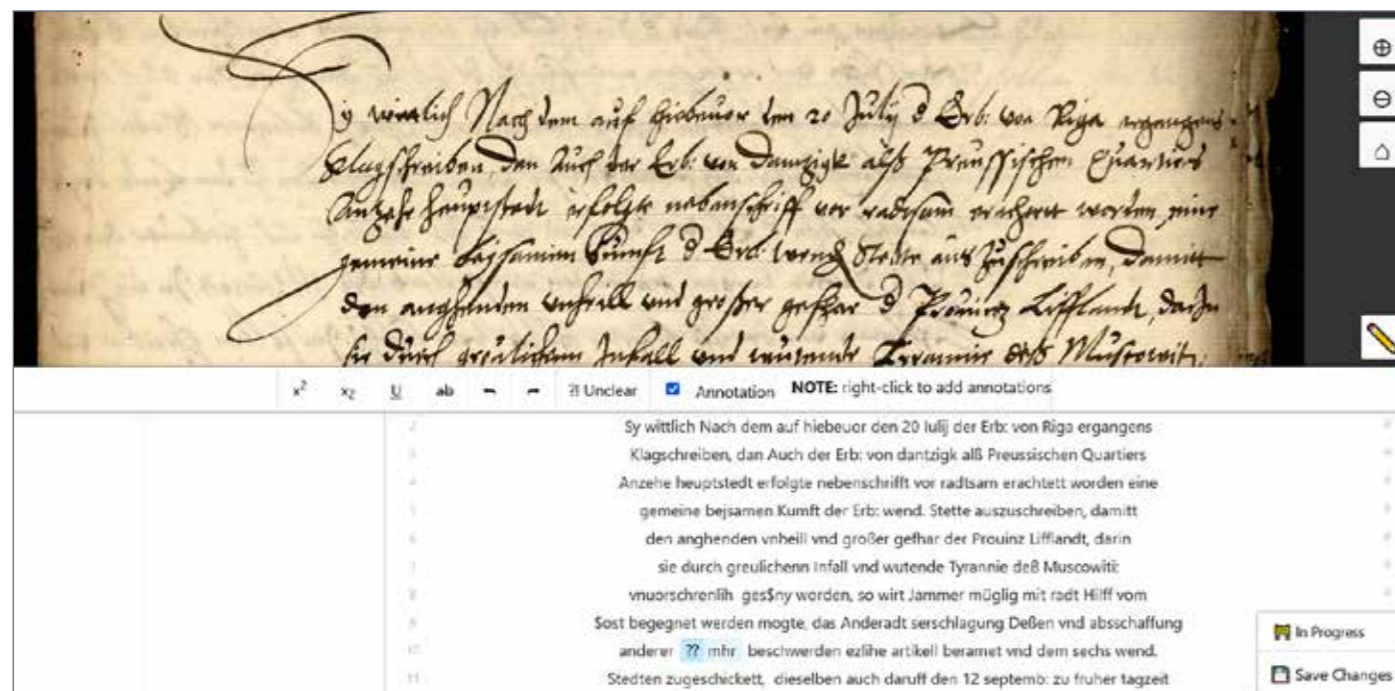 Sy wittlich Nach dem auf hiebeuor den 20 Julij d Erb: von Riga ergangens
Klagschreiben, dan Auch der Erb: von Dantzigk alß Preussischen Quartiers
Anzehe heuptstedt erfolgte nebenschrifft vor radtsam erachtett worden eine
gemeine bejsamen Kumft d Erb: wend Stette aus Zuschreiben, damitt
den anghenden vnheill vnd großer gefhar d Prouintz Lifflandt, darin
sie durch greulichenn Infall vnd wutende Tyrannie deß Muscowiti:
x² x₂ U ab ⁇ Unclear Annotation NOTE: right-click to add annotations
2 Sy wittlich Nach dem auf hiebeuor den 20 Iulij der Erb: von Riga ergangens
3 Klagschreiben, dan Auch der Erb: von dantzigk alß Preussischen Quartiers
4 Anzehe heuptstedt erfolgte nebenschrifft vor radtsam erachtett worden eine
5 gemeine bejsamen Kumft der Erb: wend. Stette auszuschreiben, damitt
6 den anghenden vnheill vnd großer gefhar der Prouinz Lifflandt, darin
7 sie durch greulichenn Infall vnd wutende Tyrannie deß Muscowiti:
8 vnuorschrenlih ges$ny worden, so wirt Jammer müglig mit radt Hilff vom
9 $ost begegnet werden mogte, das Anderadt serschlagung Deßen vnd absschaffung
10 anderer ?? mhr beschwerden ezlihe artikell beramet vnd dem sechs wend.
11 Stedten zugeschickett, dieselben auch daruff den 12 septemb: zu fruher tagzeit
In Progress
Save Changes